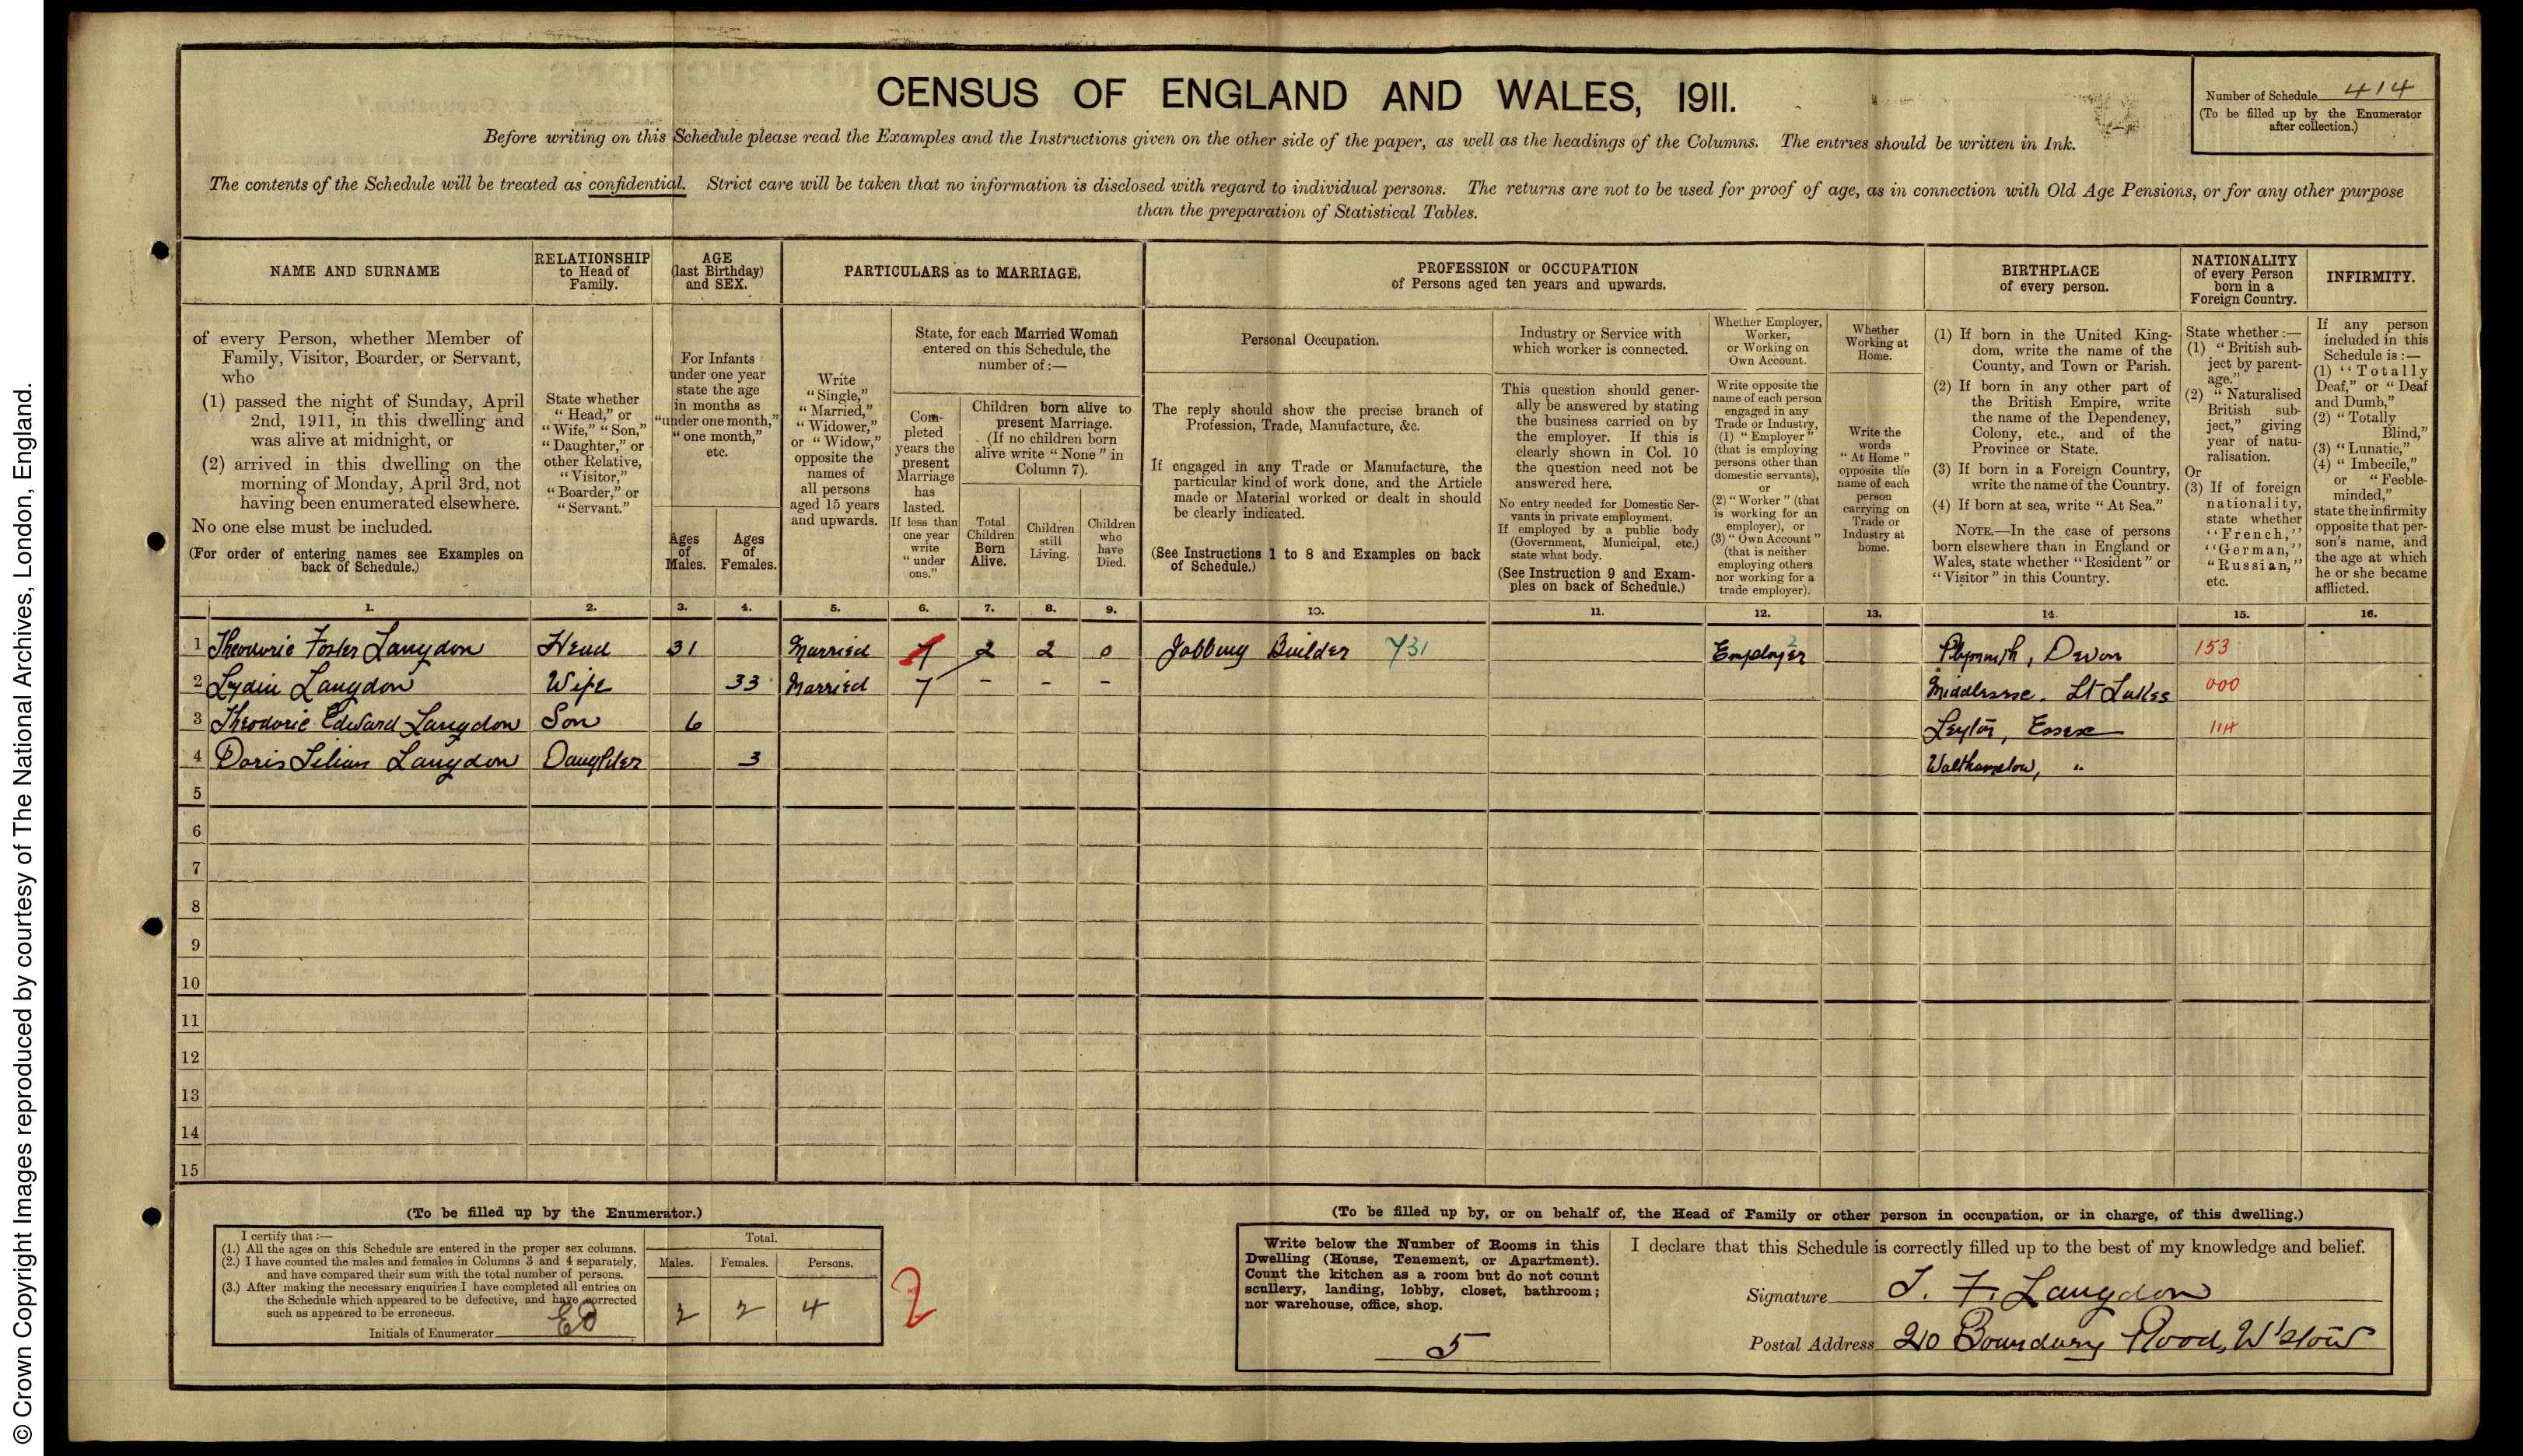 CENSUS OF ENGLAND AND WALES, 1911.
Number of Schedule 414
(To be filled up by the Enumerator
after collection.)
Before writing on this Schedule please read the Examples and the Instructions given on the other side of the paper, as well as the headings of the Columns. The entries should be written in Ink.
The contents of the Schedule will be treated as confidential. Strict care will be taken that no information is disclosed with regard to individual persons. The returns are not to be used for proof of age, as in connection with Old Age Pensions, or for any other purpose
than the preparation of Statistical Tables.
NAME AND SURNAME
of every Person, whether Member of
Family, Visitor, Boarder, or Servant,
who
(1) passed the night of Sunday, April
2nd, 1911, in this dwelling and
was alive at midnight, or
(2) arrived in this dwelling on the
morning of Monday, April 3rd, not
having been enumerated elsewhere.
No one else must be included.
(For order of entering names see Examples on
back of Schedule.)
RELATIONSHIP
to Head of
Family.
State whether
"Head," or
"Wife," "Son,"
"Daughter," or
other Relative,
"Visitor,"
"Boarder," or
"Servant."
AGE
(last Birthday)
and SEX.
For Infants
under one year
state the age
in months as
"under one month,"
"one month,"
etc.
Ages
of
Males.
Ages
of
Females.
PARTICULARS as to MARRIAGE.
Write
"Single,"
"Married,"
"Widower,"
or "Widow,"
opposite the
names of
all persons
aged 15 years
and upwards.
State, for each Married Woman
entered on this Schedule, the
number of:—
Com-
pleted
years the
present
Marriage
has
lasted.
If less than
one year
write
"under
one."
Children born alive to
present Marriage.
(If no children born
alive write "None" in
Column 7).
Total
Children
Born
Alive.
Children
still
Living.
Children
who
have
Died.
PROFESSION or OCCUPATION
of Persons aged ten years and upwards.
Personal Occupation.
The reply should show the precise branch of
Profession, Trade, Manufacture, &c.
If engaged in any Trade or Manufacture, the
particular kind of work done, and the Article
made or Material worked or dealt in should
be clearly indicated.
(See Instructions 1 to 8 and Examples on back
of Schedule.)
Industry or Service with
which worker is connected.
This question should gener-
ally be answered by stating
the business carried on by
the employer. If this is
clearly shown in Col. 10
the question need not be
answered here.
No entry needed for Domestic Ser-
vants in private employment.
If employed by a public body
(Government, Municipal, etc.)
state what body.
(See Instruction 9 and Exam-
ples on back of Schedule.)
Whether Employer,
Worker,
or Working on
Own Account.
Write opposite the
name of each person
engaged in any
Trade or Industry,
(1) "Employer"
(that is employing
persons other than
domestic servants),
or
(2) "Worker" (that
is working for an
employer), or
(3) "Own Account"
(that is neither
employing others
nor working for a
trade employer).
Whether
Working at
Home.
Write the
words
"At Home"
opposite the
name of each
person
carrying on
Trade or
Industry at
home.
BIRTHPLACE
of every person.
(1) If born in the United King-
dom, write the name of the
County, and Town or Parish.
(2) If born in any other part of
the British Empire, write
the name of the Dependency,
Colony, etc., and of the
Province or State.
(3) If born in a Foreign Country,
write the name of the Country.
(4) If born at sea, write "At Sea."
NOTE.—In the case of persons
born elsewhere than in England or
Wales, state whether "Resident" or
"Visitor" in this Country.
NATIONALITY
of every Person
born in a
Foreign Country.
State whether:—
(1) "British sub-
ject by parent-
age."
(2) "Naturalised
British sub-
ject," giving
year of natu-
ralisation.
Or
(3) If of foreign
nationality,
state whether
"French,"
"German,"
"Russian,"
etc.
INFIRMITY.
If any person
included in this
Schedule is:—
(1) "Totally
Deaf," or "Deaf
and Dumb,"
(2) "Totally
Blind,"
(3) "Lunatic,"
(4) "Imbecile,"
or "Feeble-
minded,"
state the infirmity
opposite that per-
son's name, and
the age at which
he or she became
afflicted.
1. 2. 3. 4. 5. 6. 7. 8. 9. 10. 11. 12. 13. 14. 15. 16.
1 Theodoric Foster Langdon Head 31 Married 7 2 2 0 Jobbing Builder 731 Employer 2 Plymouth, Devon 153
2 Lydia Langdon Wife 33 Married 7 - - - Middlesex. St Lukes 000
3 Theodoric Edward Langdon Son 6 Leyton, Essex 114
4 Doris Lilian Langdon Daughter 3 Walthamstow, "
5
6
7
8
9
10
11
12
13
14
15
(To be filled up by the Enumerator.)
I certify that:—
(1.) All the ages on this Schedule are entered in the proper sex columns.
(2.) I have counted the males and females in Columns 3 and 4 separately,
and have compared their sum with the total number of persons.
(3.) After making the necessary enquiries I have completed all entries on
the Schedule which appeared to be defective, and have corrected
such as appeared to be erroneous.
Initials of Enumerator
Total.
Males. Females. Persons.
2 2 4
2
(To be filled up by, or on behalf of, the Head of Family or other person in occupation, or in charge, of this dwelling.)
Write below the Number of Rooms in this
Dwelling (House, Tenement, or Apartment).
Count the kitchen as a room but do not count
scullery, landing, lobby, closet, bathroom;
nor warehouse, office, shop.
5
I declare that this Schedule is correctly filled up to the best of my knowledge and belief.
Signature T. F. Langdon
Postal Address 210 Boundary Road, W'stow
© Crown Copyright Images reproduced by courtesy of The National Archives, London, England.